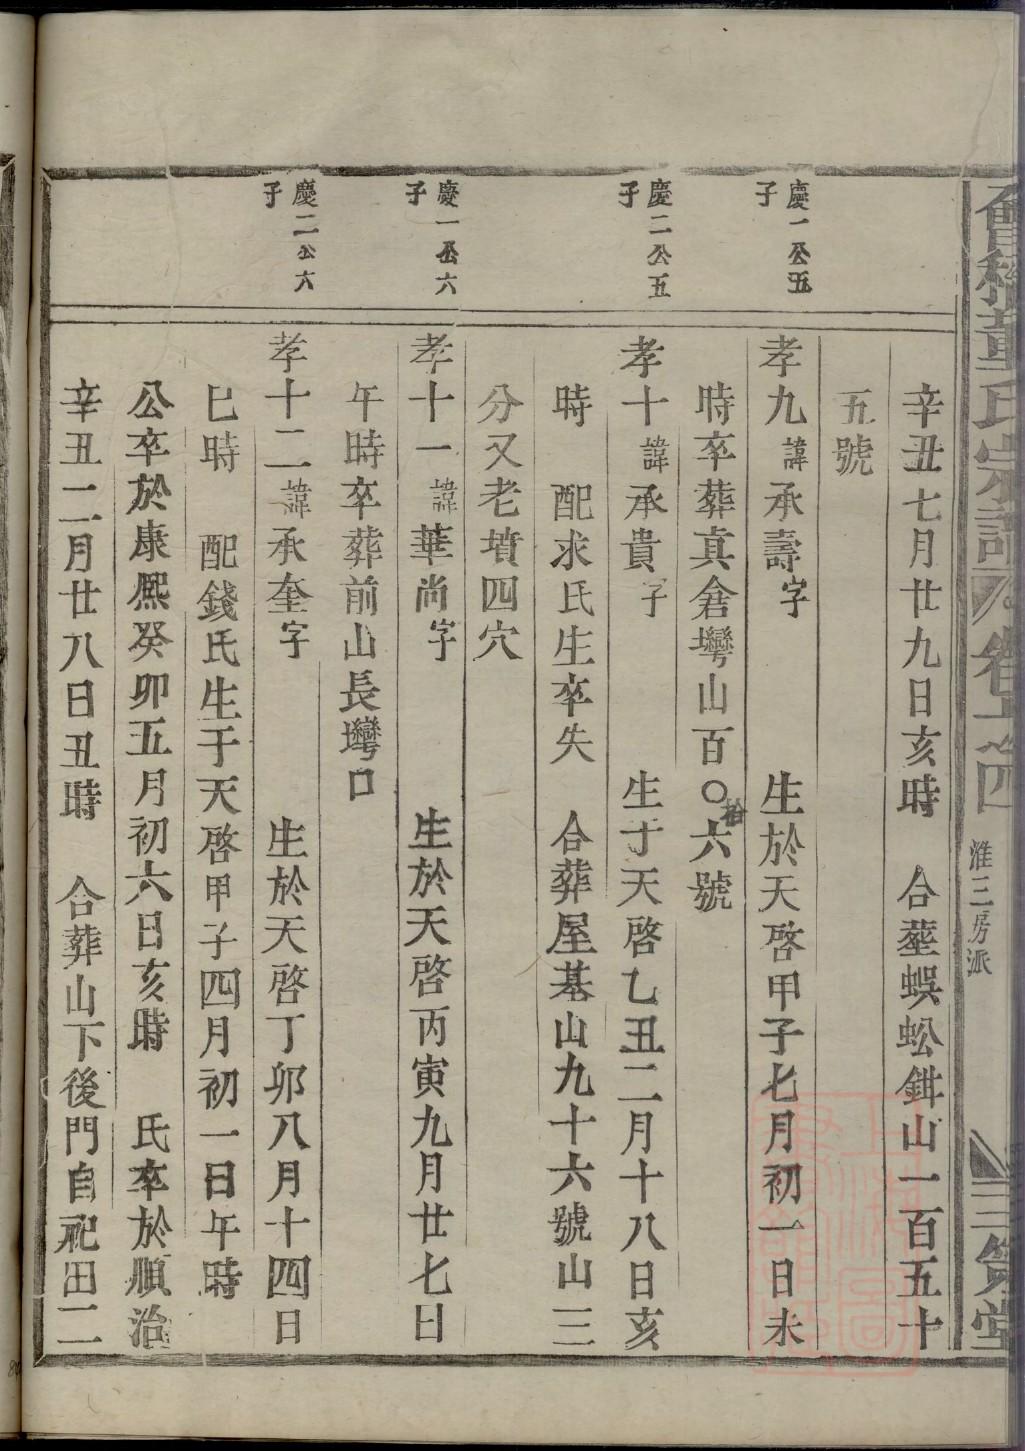 會稽董氏宗譜
卷十四
淮三房派
三策堂
辛丑七月廿九日亥時 合塟蜈蚣鉗山一百五十
五號
慶一公五
子
孝九諱承壽字 生於天啓甲子七月初一日未
時卒葬真倉壪山百〇拾六號
慶二公五
子
孝十諱承貴子 生于天啓乙丑二月十八日亥
時 配求氏生卒失 合葬屋基山九十六號山三
分又老墳四穴
慶一公六
子
孝十一諱華尚字 生於天啓丙寅九月廿七日
午時卒葬前山長壪口
慶二公六
子
孝十二諱承奎字 生於天啓丁卯八月十四日
巳時 配錢氏生于天啓甲子四月初一日午時
公卒於康熈癸卯五月初六日亥時 氏卒於順治
辛丑二月廿八日丑時 合葬山下後門自祀田二